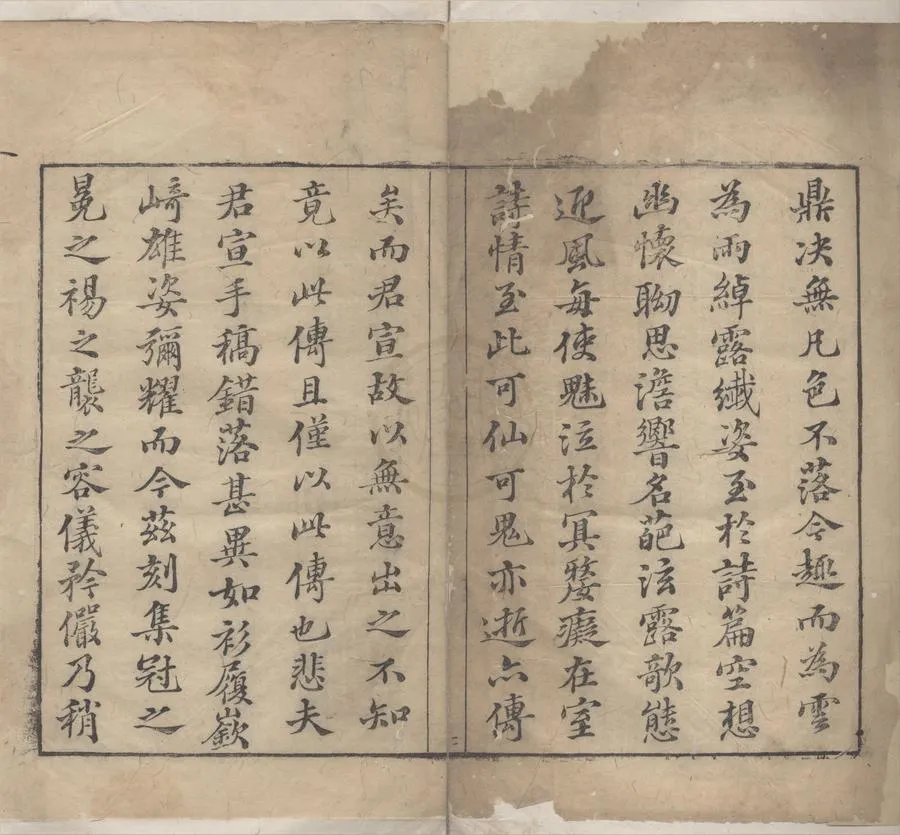 鼎决無凡色不落今趣而為雲
為雨綽露纖姿至於詩篇空想
幽懷眑思澹響名葩泫露歌態
迎風每使魅泣於冥嫠癡在室
詩情至此可仙可鬼亦逝亦傳
矣而君宣故以無意出之不知
竟以此傳且僅以此傳也悲夫
君宣手稿錯落甚異如衫履嶔
崎雄姿彌耀而今茲刻集冠之
冕之裼之襲之容儀矜儼乃稍